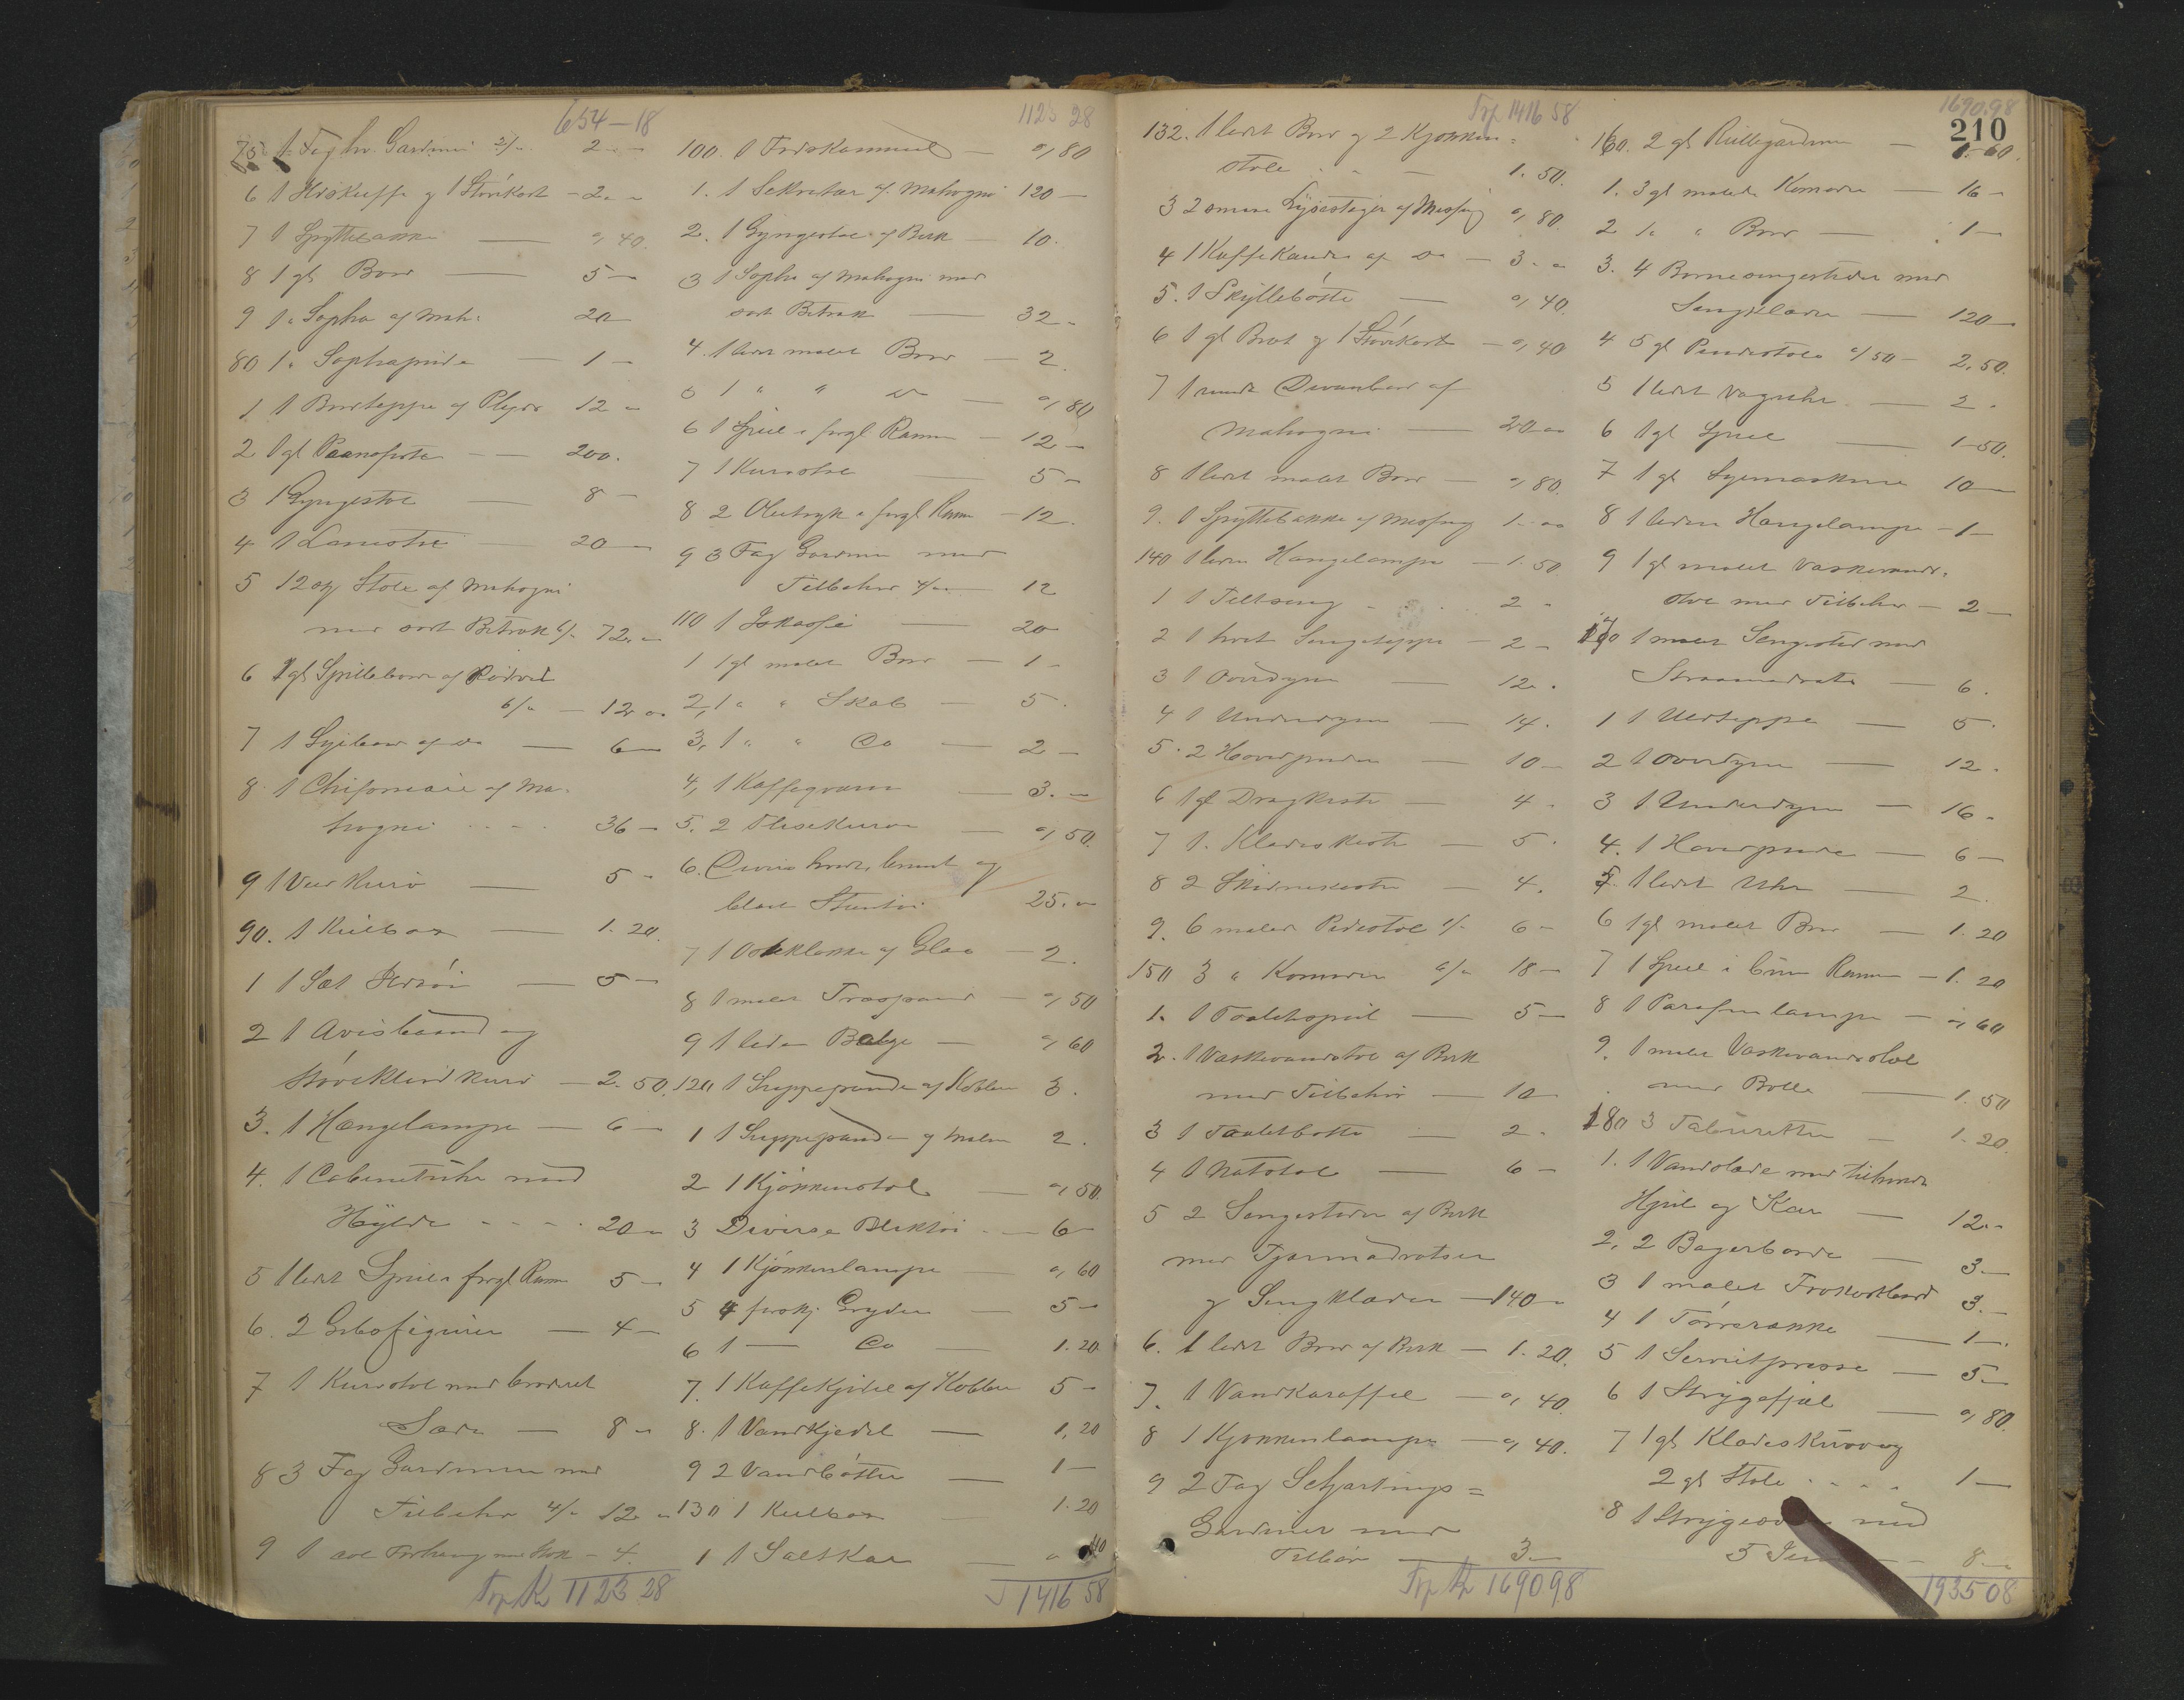 654-18
75 1 Fag hv. Gardiner 2/" 2 - -
6 1 Hiskuffe og 1 Støvekost - 2 - -
7 1 Spyttebakke - " 40.
8 1 gl Bord - 5 -
9 1 " Sopha af Mah. 20
80 1 " Sophapude - 1 -
1 1 Bordteppe af Plyds 12 -
2 1 gl Pianoforte - 200.
3 1 Gyngestol - 8 -
4 1 Lænestol - 20 -
5 12 stk Stole af Mahogni
med sort Betræk 6/- 72. -
6 2 gl Spillebord af Rødved
6/" - 12 -
7 1 Sybord af do - 6 -
8 1 Chifoniere af Ma-
hogni - - - 36 -
9 1 Vedkurv - 5 -
90. 1 Kulbox - 1.20.
1 1 Sæt Ildtøi - 5 -
2 1 Avisbaand og
Støvekludkurv - 2.50.
3. 1 Hængelampe - 6 -
4. 1 Cabinetuhr med
Hylde - - - 20 -
5 1 lidet Speil i forgl Ramme 5 -
6. 2 Gibsfigurer - 4 -
7 1 Kurvstol med broderet
Sæde - 8 -
8 3 Fag Gardiner med
Tilbehør 4/- 12 -
9 1 Forhæng med Stok - 4.
Trp Kr 1123.28
1123 28
100. 1 Fodskammel - " 80
1. 1 Sekretær af Mahogni 120 -
2. 1 Gyngestol af Birk - 10.
3 1 Sopha af Mahogni med
sort Betræk - 32 -
4. 1 lidet malet Bord - 2.
5 1 " " do - " 80
6 1 Speil i forgl Ramme - 12 -
7 1 Kurvstol - 5 -
8 2 Oletryk i forgl Ramme - 12.
9 3 Fag Gardiner med
Tilbehør 4/- 12
110 1 Iskasse - 20
1 1 gl malet Bord - 1 -
2, 1 " " Skab - 5.
3, 1 " " Do - 2 -
4, 1 Kaffeqværn - 3. -
5. 2 Flisekurve - " 50.
6. Div. hvidt, brunt og
blaat Stentøi 25. -
7 1 Osteklokke af Glas - 2.
8 1 malet Træspand - " 50
9 1 liden Balge - " 60
120 1 Suppepande af Kobber 3.
1 1 Suppepande af Malm 2.
2 1 Kjøkkenstol - " 50.
3 Diverse Bliktøi - 6 -
4 1 Kjøkkenlampe - " 60
5 4 forskj. Gryder - 5 -
6 1 - Do - 1.20
7. 1 Kaffekjedel af Kobber 5 -
8. 1 Vandkjedel - 1,20
9 2 Vandbøtter - 1 -
130 1 Kulbox - 1.20
1 1 Saltkar - " 40
1416 58
Trp 1416 58
132. 1 lidet Bord og 2 Kjøkken-
stole - - 1.50.
3 2 smaa Lysestager af Messing " 80.
4 1 Kaffekande af Do - 3. -
5. 1 Skyllebøtte - " 40.
6 1 gl Bret og 1 Støvekost - " 40
7 1 rundt Divanbord af
Mahogni - 20 -
8 1 lidet malet Bord - " 80.
9. 1 Spyttebakke af Messing 1. -
140 1 liden Hængelampe - 1.50.
1 1 Feltseng - 2 -
2 1 hvidt Sengeteppe - 2 -
3 1 Overdyne - 12.
4 1 Underdyne - 14.
5. 2 Hovedpuder - 10 -
6 1 gl Dragkiste - 4 -
7 1. Klædeskiste - 5.
8 2 Skidnekister - 4.
9. 6 malede Pindestole 1/- 6 -
150 3 " Komoder 6/- 18 -
1. 1 Toiletspeil - 5 -
2. 1 Vaskevandstol af Birk
med Tilbehør - 10
3 1 Toiletbøtte - 2 -
4 1 Natstol - 6 -
5 2 Sengesteder af Birk
med Fjærmadratser
og Sengklæder - 140 -
6. 1 lidet Bord af Birk - 1.20.
7. 1 Vandkaraffel - " 40.
8 1 Kjøkkenlampe - " 40.
9 2 Fag Schjærtings=
Gardiner med
Tilbør - 3 -
Trp Kr 1690.98
1690.98
210
160. 2 gl Rullegardiner - 1.60.
1. 3 gl malede Komoder - 16 -
2 1 " " Bord - 1 -
3. 4 Børnesengesteder med
Sengklæder - 120 -
4 5 gl Pindestole "/50 - 2,50.
5 1 lidet Væguhr - 2.
6 1 gl Speil - 1.50.
7 1 gl Symaskine 10 -
8 1 liden Hængelampe - 1 -
9 1 gl malet Vaskevands-
stol med Tilbehør - 2 -
170 1 malet Sengested med
Straamadrats - 6.
1 1 Uldteppe - 5.
2 1 Overdyne - 12.
3 1 Underdyne - 16 -
4. 1 Hovedpude - 6 -
5 1 lidet Uhr - 2.
6 1 gl malet Bord - 1.20
7 1 Speil i brun Ramme - 1.20
8 1 Parafinlampe - " 60
9. 1 malet Vaskevandsstol
med Bolle - 1.50
180 3 Taburetter - 1.20.
1. 1 Vandslæde med tilhørende
Hjul og Kar - 12. -
2, 2 Bagerborde - 3 -
3 1 malet Frokostbord 3. -
4 1 Tørrerække - 1 -
5 1 Servietpresse - 5 -
6 1 Strygefjæl - " 80.
7 1 gl Klædeskurv og
2 gl Stole - - - 1 -
8 1 Strygeovn med
5 Jern - 8 -
1935 08